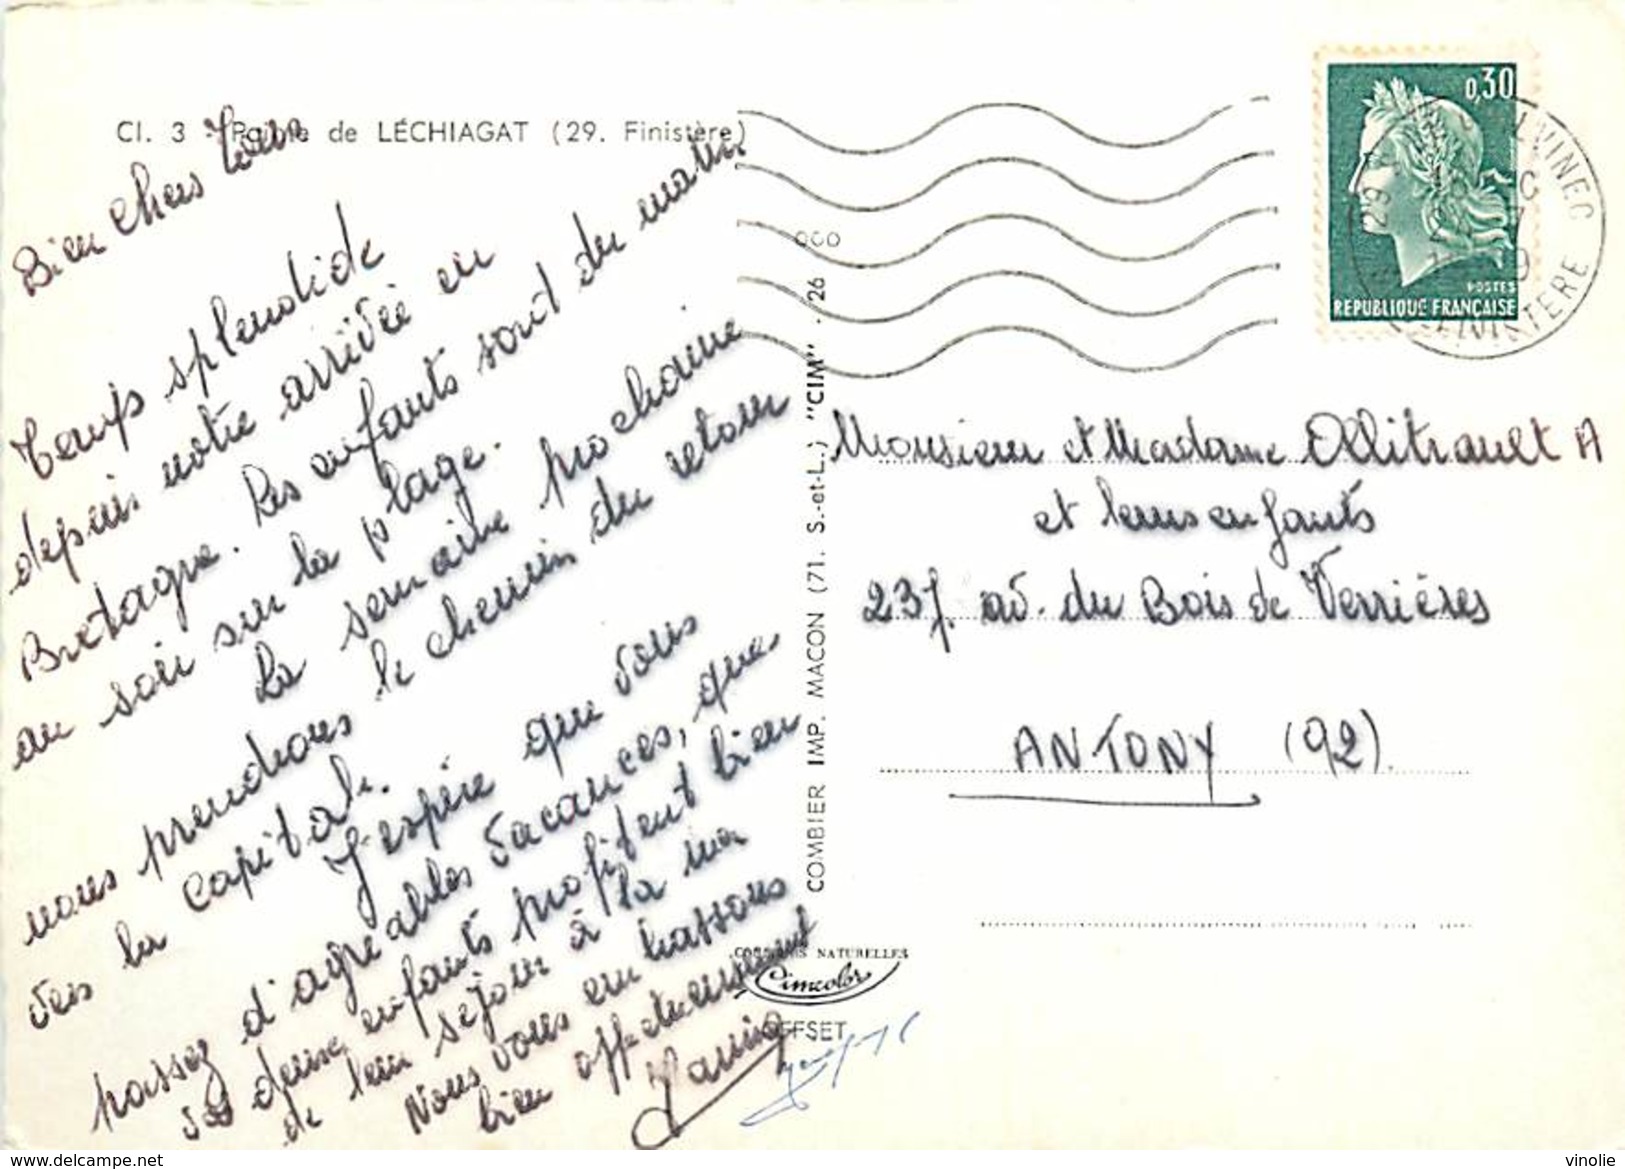 Cl. 3 - Phare de LÉCHIAGAT (29. Finistère)
Bien chers tous
Temps splendide
depuis notre arrivée en
Bretagne. Les enfants sont du matin
au soir sur la plage.
La semaine prochaine
nous prendrons le chemin du retour
vers la capitale.
J'espère que vous
passez d'agréables vacances, que
vos deux enfants profitent bien
de leur séjour à la mer
Nous vous embrassons
bien affectueusement
0,30
POSTES
REPUBLIQUE FRANÇAISE
29
FINISTERE
000
COMBIER IMP. MACON (71. S.-et-L.) "CIM" . 26
Monsieur et Madame Ollitrault A
et leurs enfants
237. av. du Bois de Verrières
ANTONY (92).
COULEURS NATURELLES
Cimcolor
OFFSET
delcampe.net
vinolie